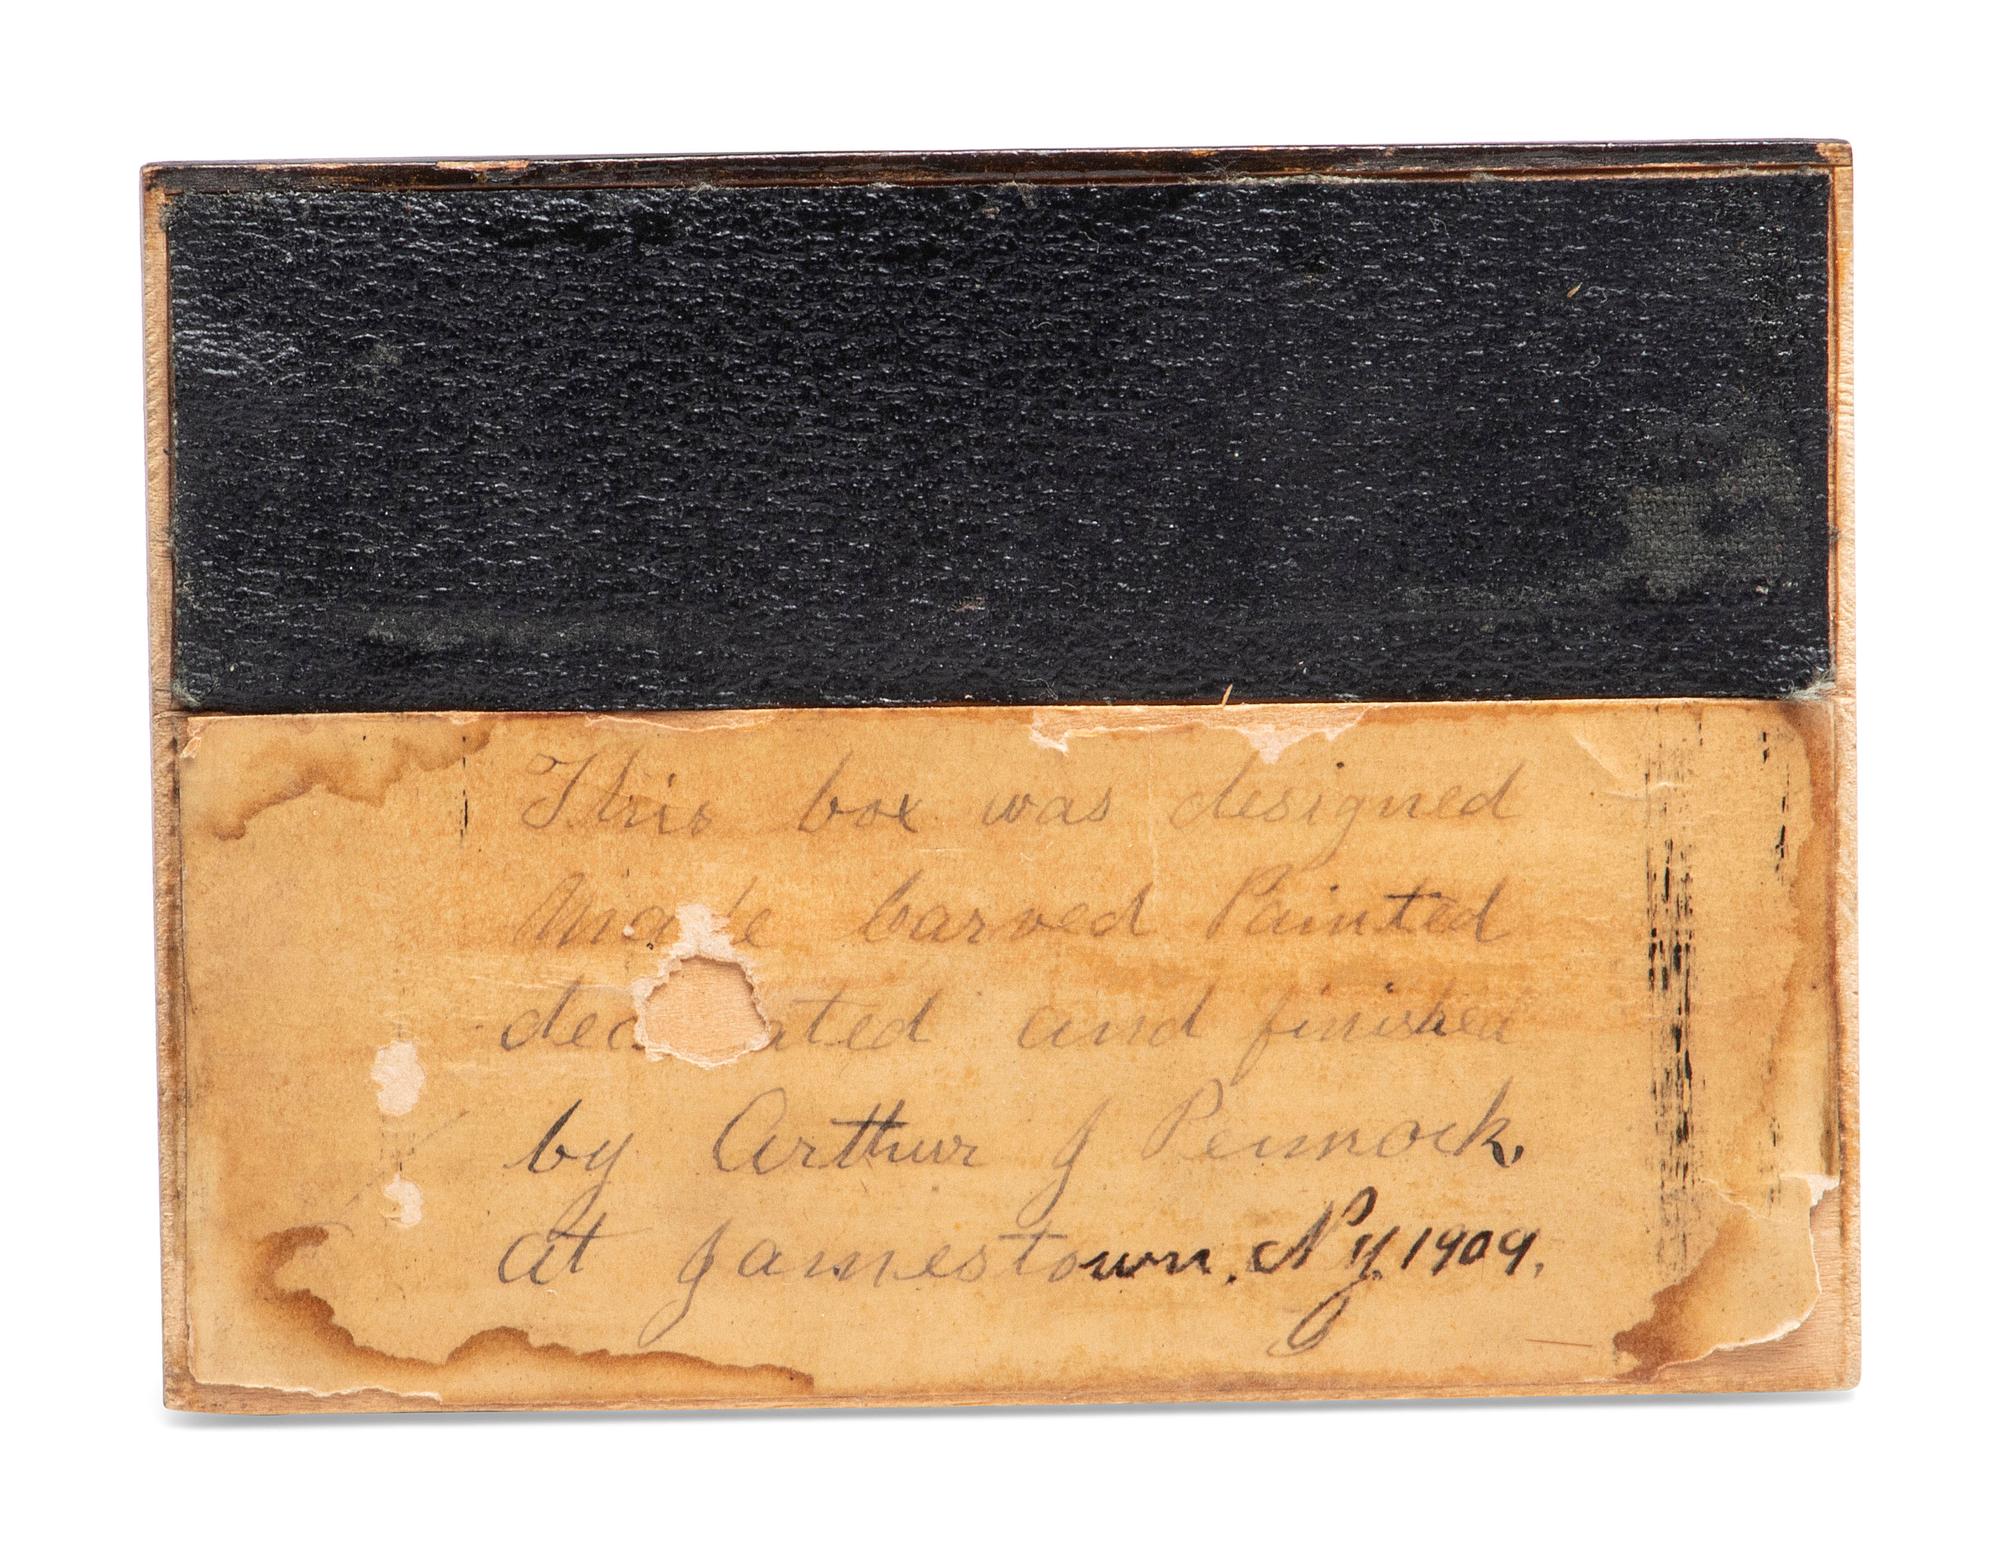 This box was designed
Made Carved Painted
decorated and finished
by Arthur J Pennock.
at Jamestown. N y. 1909.